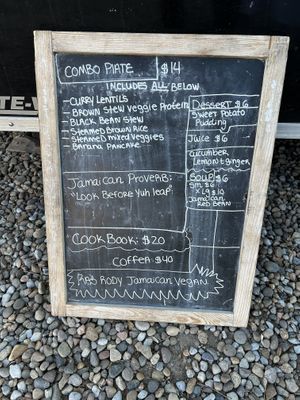 COMBO PLATE $14
INCLUDES ALL BELOW
- CURRY LENTILS
- BROWN STEW VEGGIE PROTEIN
- BLACK BEAN STEW
- STEAMED BROWN RICE
- STEAMED MIXED VEGGIES
- BANANA PANCAKE
DESSERT $6
SWEET POTATO
PUDDING
JUICE $6
CUCUMBER
LEMON & GINGER
SOUP $6
SM $6
LG $10
JAMAICAN
RED BEAN
JAMAICAN PROVERB:
"LOOK BEFORE YUH LEAP"
COOK BOOK: $20
COFFEE: $40
RAS RODY JAMAICAN VEGAN